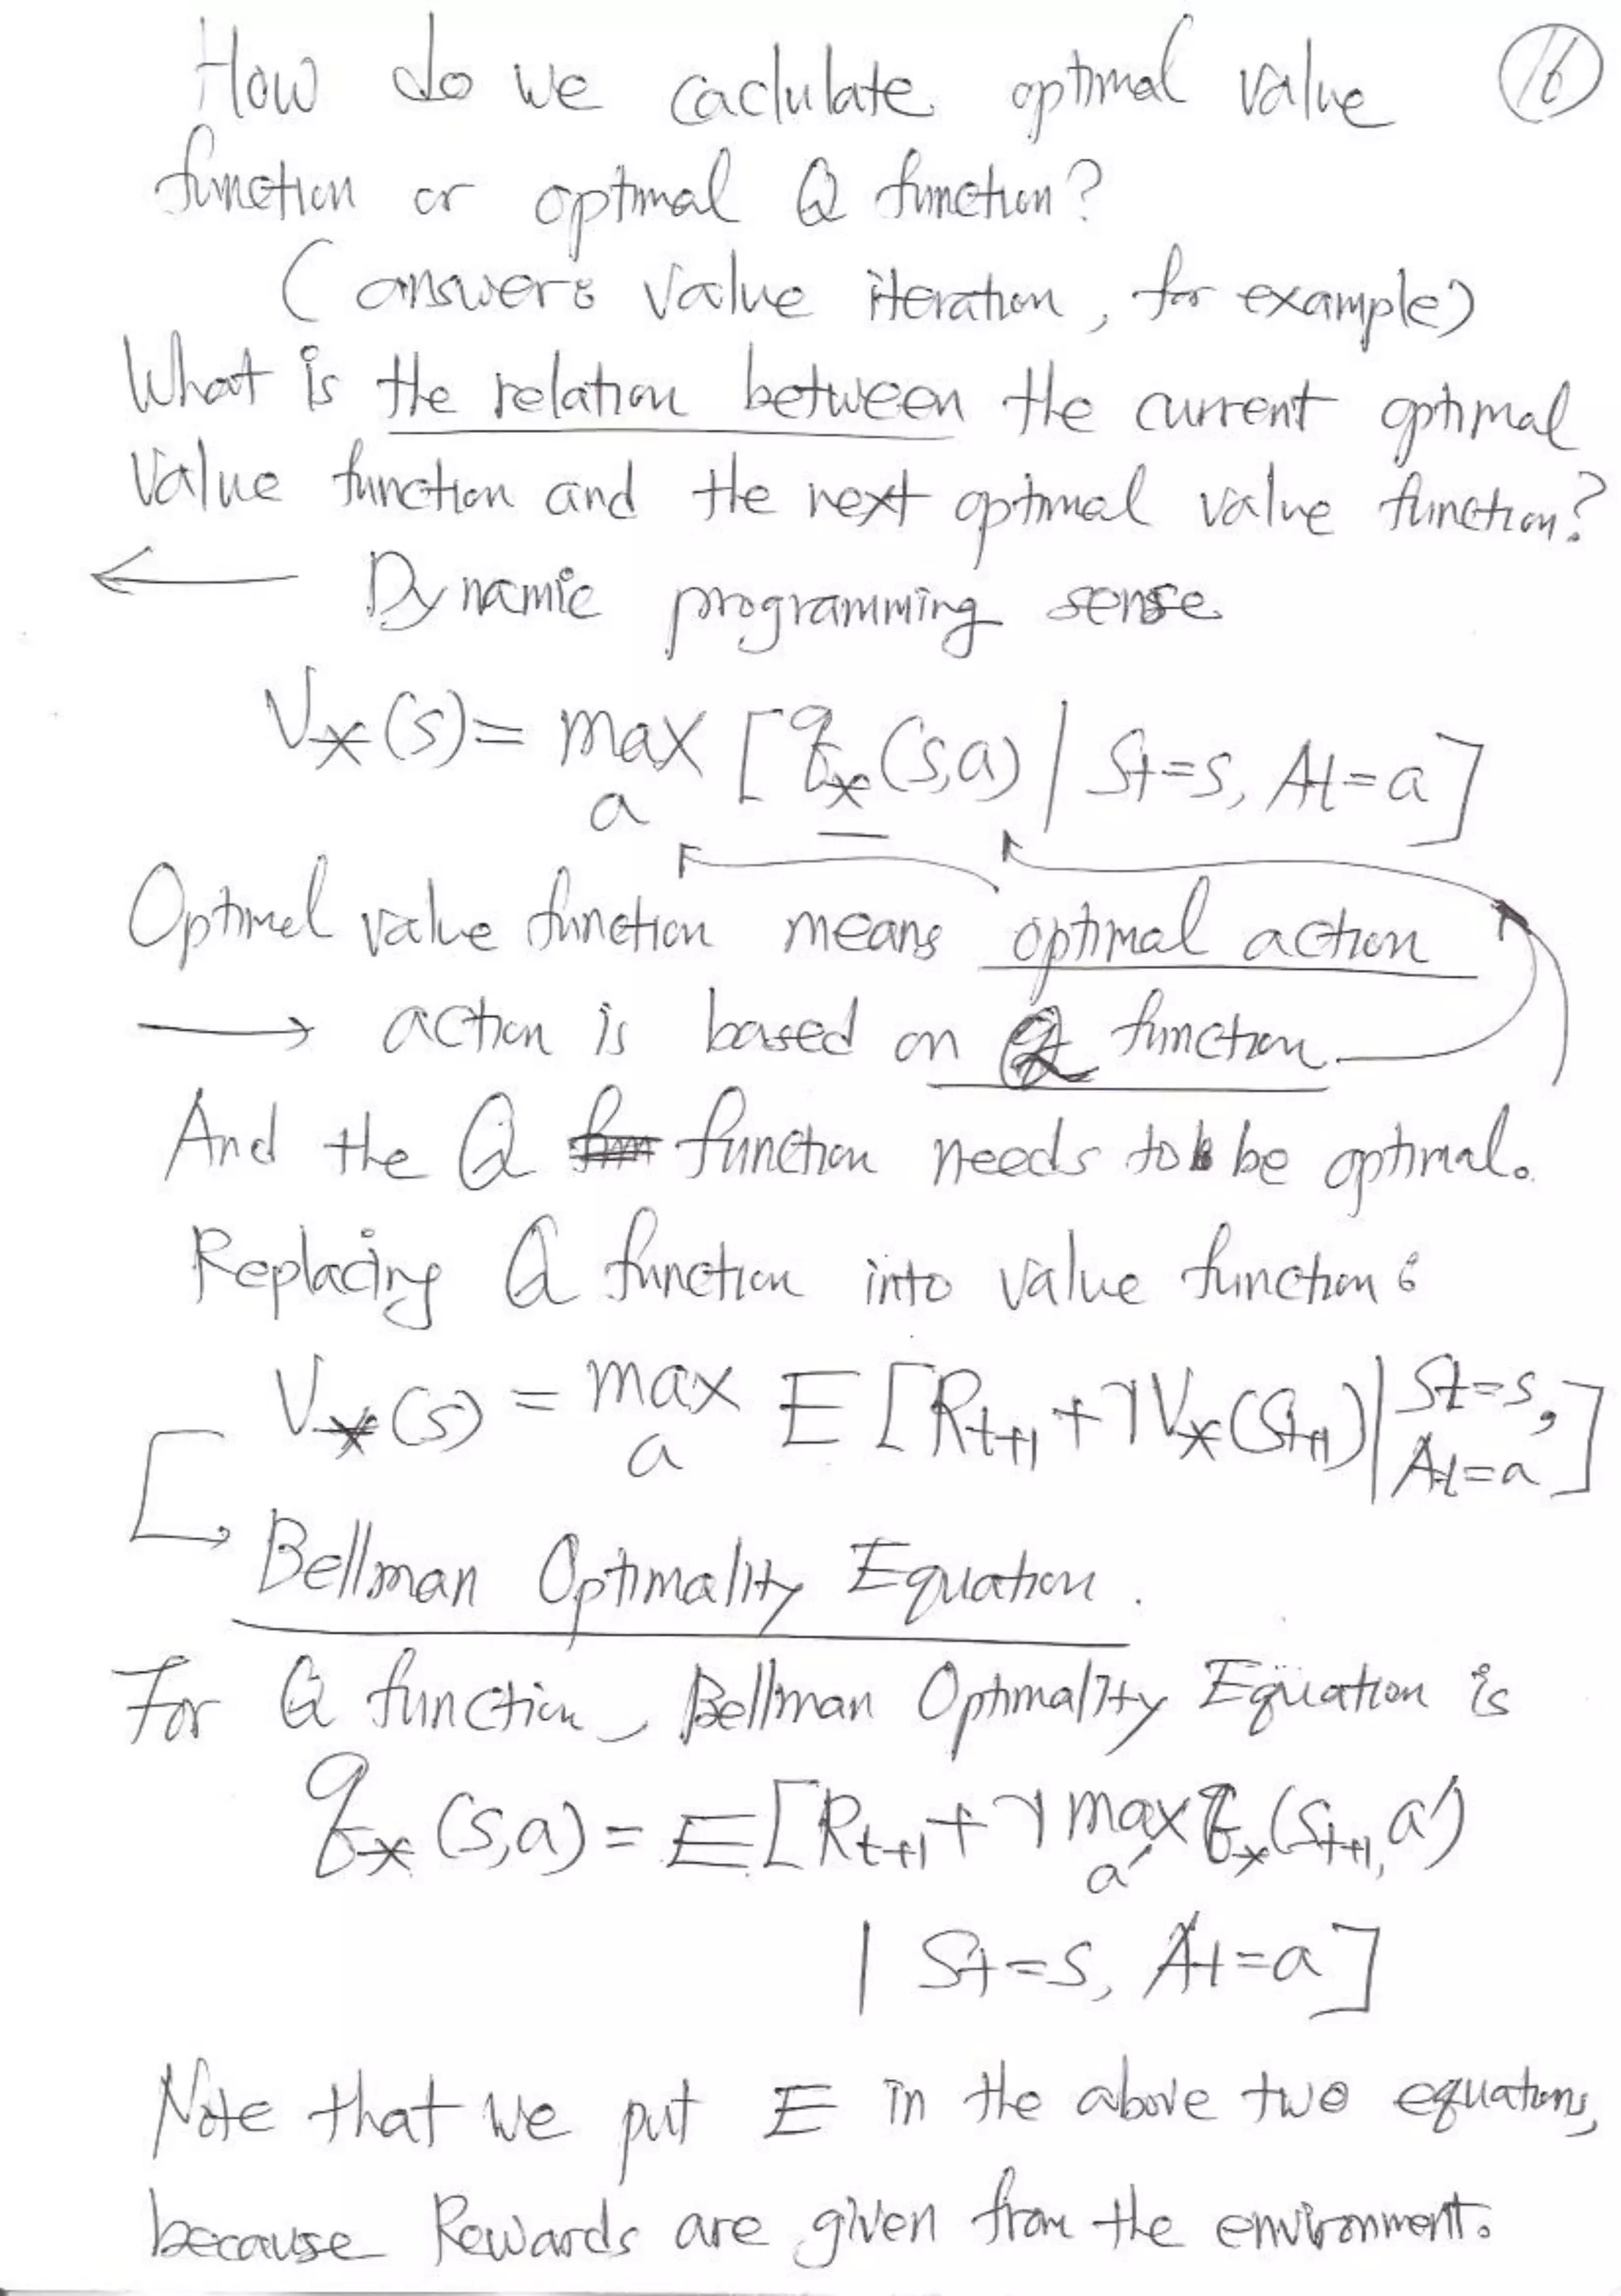 How do we caclulate optimal value ⑯
function or optimal Q function?
(answer: value iteration, for example)
What is the relation between the current optimal
value function and the next optimal value function?
← Dynamic programming sense
V*(s) = max [q*(s,a) | St=s, At=a]
a
Optimal value function means optimal action
→ action is based on Q function
And the Q function needs to be optimal.
Replacing Q function into value function:
V*(s) = max E [Rt+1 + γV*(St+1) | St=s,
a At=a]
Bellman Optimality Equation.
For Q function, Bellman Optimality Equation is
q*(s,a) = E[Rt+1 + γ max q*(St+1, a')
a'
| St=s, At=a]
Note that we put E in the above two equations,
because Rewards are given from the environment.